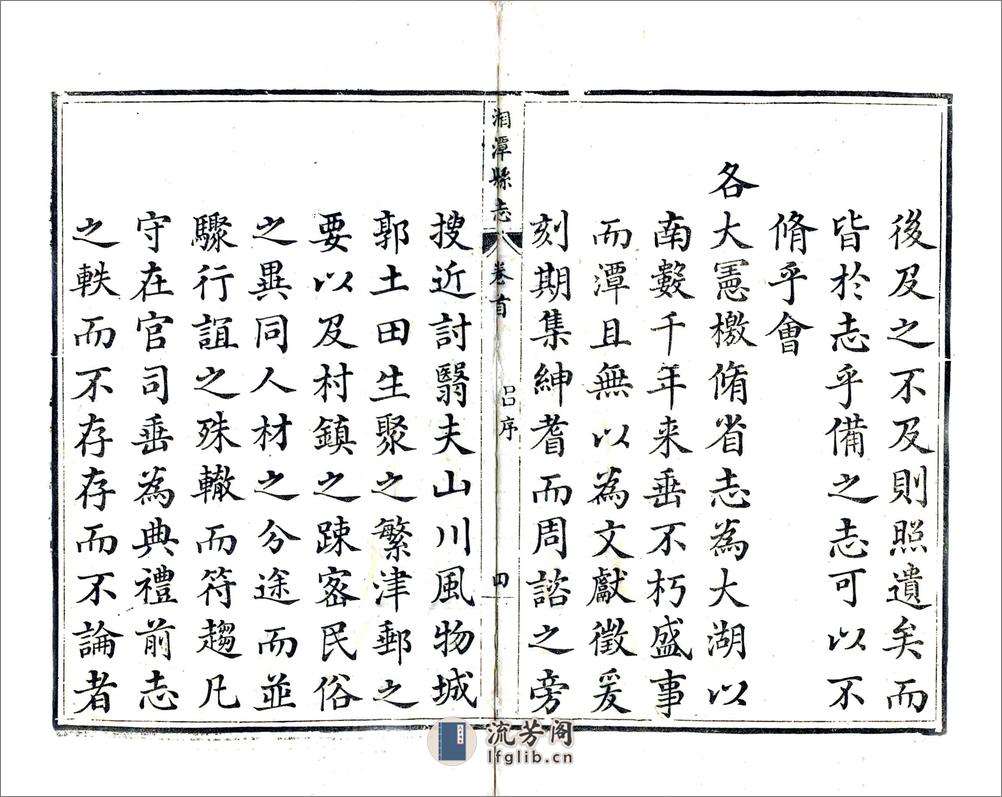 後及之不及則照遺矣而
皆於志乎備之志可以不
脩乎會
各大憲檄脩省志為大湖以
南數千年来垂不朽盛事
而潭且無以為文獻徵爰
刻期集紳耆而周諮之旁
湘潭縣志 卷首 吕序 四
搜近討翳夫山川風物城
郭土田生聚之繁津郵之
要以及村鎮之踈宻民俗
之異同人材之分途而並
驟行誼之殊轍而符趨凡
守在官司垂為典禮前志
之軼而不存存而不論者
流芳阁
lfglib.cn